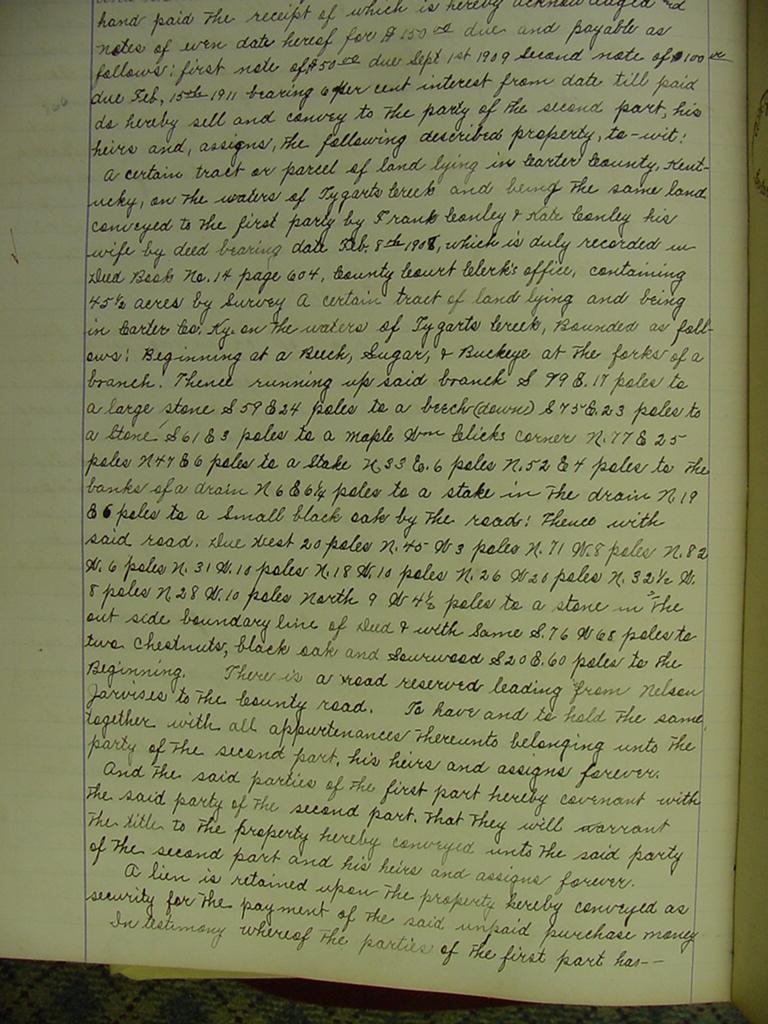 hand paid the receipt of which is hereby acknowledged and
notes of even date hereof for $150 00 due and payable as
follows: first note of $50 00 due Sept 1st 1909 Second note of $100 00
due Feb, 15th 1911 bearing 6 per cent interest from date till paid
do hereby sell and convey to the party of the second part, his
heirs and, assigns, the following described property, to-wit:
A certain tract or parcel of land lying in Carter County, Kent-
ucky, on the waters of Tygarts Creek and being the same land
conveyed to the first party by Frank Conley & Kate Conley his
wife by deed bearing date Feb. 8th 1908, which is duly recorded in
Deed Book No. 14 page 604, County Court Clerk's office, containing
45 1/2 acres by Survey A certain tract of land lying and being
in Carter Co. Ky. on the waters of Tygarts Creek, Bounded as foll-
ows: Beginning at a Beech, Sugar, & Buckeye at the forks of a
branch. Thence running up said branch S 79 E. 17 poles to
a large stone S 59 E 24 poles to a beech (down) S 75 E. 23 poles to
a Stone S 61 E 3 poles to a maple Wm Clicks corner N. 77 E 25
poles N 47 E 6 poles to a Stake N 33 E. 6 poles N. 52 E 4 poles to the
banks of a drain N 6 E 6 1/4 poles to a stake in the drain N. 19
E 6 poles to a Small black oak by the road: Thence with
said road. Due West 20 poles N. 45 W 3 poles N. 71 W. 8 poles N. 82
W. 6 poles N. 31 W. 10 poles N. 18 W. 10 poles N. 26 W 20 poles N. 32 1/2 W.
8 poles N. 28 W. 10 poles North 9 W 4 1/2 poles to a stone in the
out side boundary line of Deed & with Same S. 76 W 68 poles to
two Chestnuts, black oak and Sourwood S 20 E. 60 poles to the
Beginning. There is a road reserved leading from Nelson
Jarvises to the County road. To have and to hold the same,
together with all appurtenances thereunto belonging unto the
party of the second part, his heirs and assigns forever.
And the said parties of the first part hereby covenant with
the said party of the second part. That they will warrant
the title to the property hereby conveyed unto the said party
of the second part and his heirs and assigns forever.
A lien is retained upon the property hereby conveyed as
security for the payment of the said unpaid purchase money
In testimony whereof the parties of the first part has--